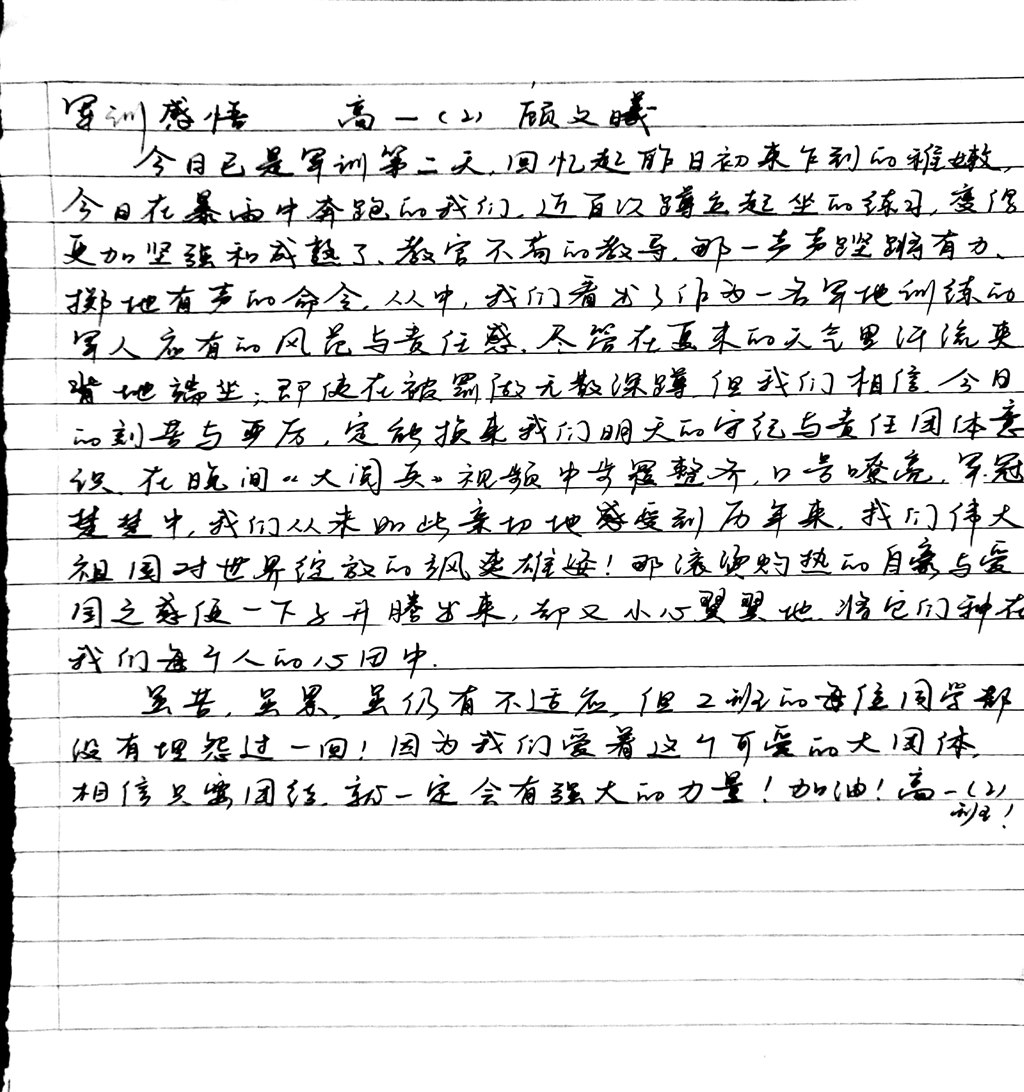 军训感悟 高一(2) 顾文曦
今日已是军训第二天,回忆起昨日初来乍到的稚嫩,
今日在暴雨中奔跑的我们,近百次蹲立起坐的练习,变得
更加坚强和成熟了、教官不苟的教导,那一声声铿锵有力、
掷地有声的命令,从中,我们看出了作为一名军地训练的
军人应有的风范与责任感、尽管在夏末的天气里汗流夹
背地端坐;即使在被罚做无数深蹲,但我们相信,今日
的刻苦与严厉,定能换来我们明天的守纪与责任团体意
识、在晚间《大阅兵》视频中步履整齐,口号嘹亮,军冠
楚楚中,我们从未如此亲切地感受到历年来,我们伟大
祖国对世界绽放的飒爽雄姿!那滚烫灼热的自豪与爱
国之感便一下子升腾出来,却又小心翼翼地、将它们种在
我们每个人的心田中.
虽苦,虽累,虽仍有不适应,但2班的每位同学都
没有埋怨过一回!因为我们爱着这个可爱的大团体,
相信只要团结,就一定会有强大的力量!加油!高一(2)
班!